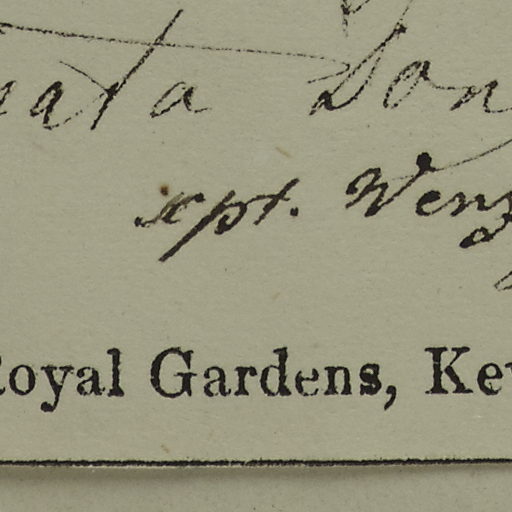 ata Don
xpt. Wenz
Royal Gardens, Kew